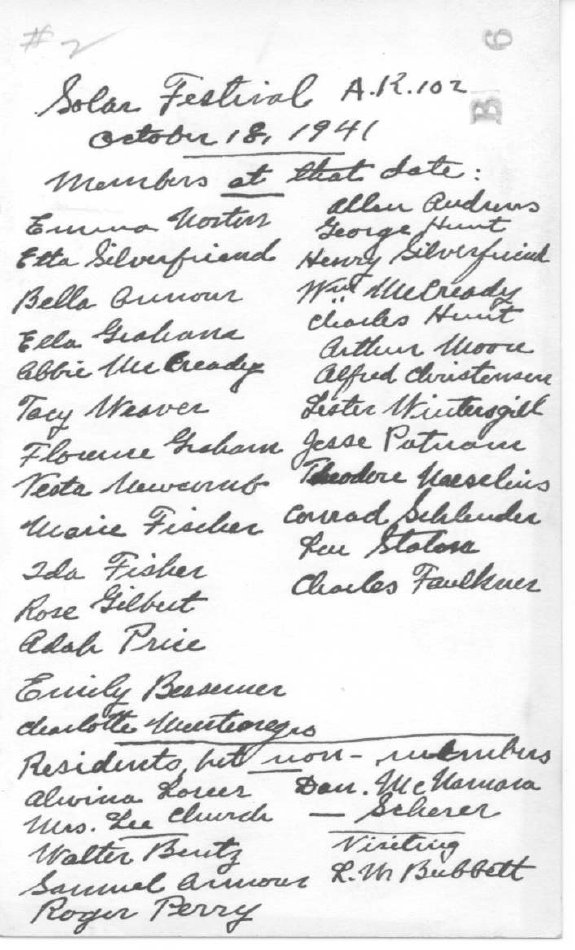 # 2
B 6
Solar Festival A.K. 102
October 18, 1941
Members at that date:
Emma Norton
Etta Silverfriend
Bella Armour
Ella Graham
Abbie McCready
Tacy Weaver
Florence Graham
Vesta Newcomb
Marie Fischer
Ida Fisher
Rose Gilbert
Adah Price
Emily Bessemer
Charlotte
Allen Andrews
George Hunt
Henry Silverfriend
Wm McCready
Charles Hunt
Arthur Moore
Alfred Christensen
Lester Wintersgill
Jesse Putnam
Theodore Naeselius
Conrad Schlender
Lou Staton
Charles Faulkner
Residents, but non-members
Alwina
Mrs. Lee Church
Walter Bentz
Samuel Armour
Roger Perry
Dan. McNamara
— Scherer
Visiting
L.M Bubbett